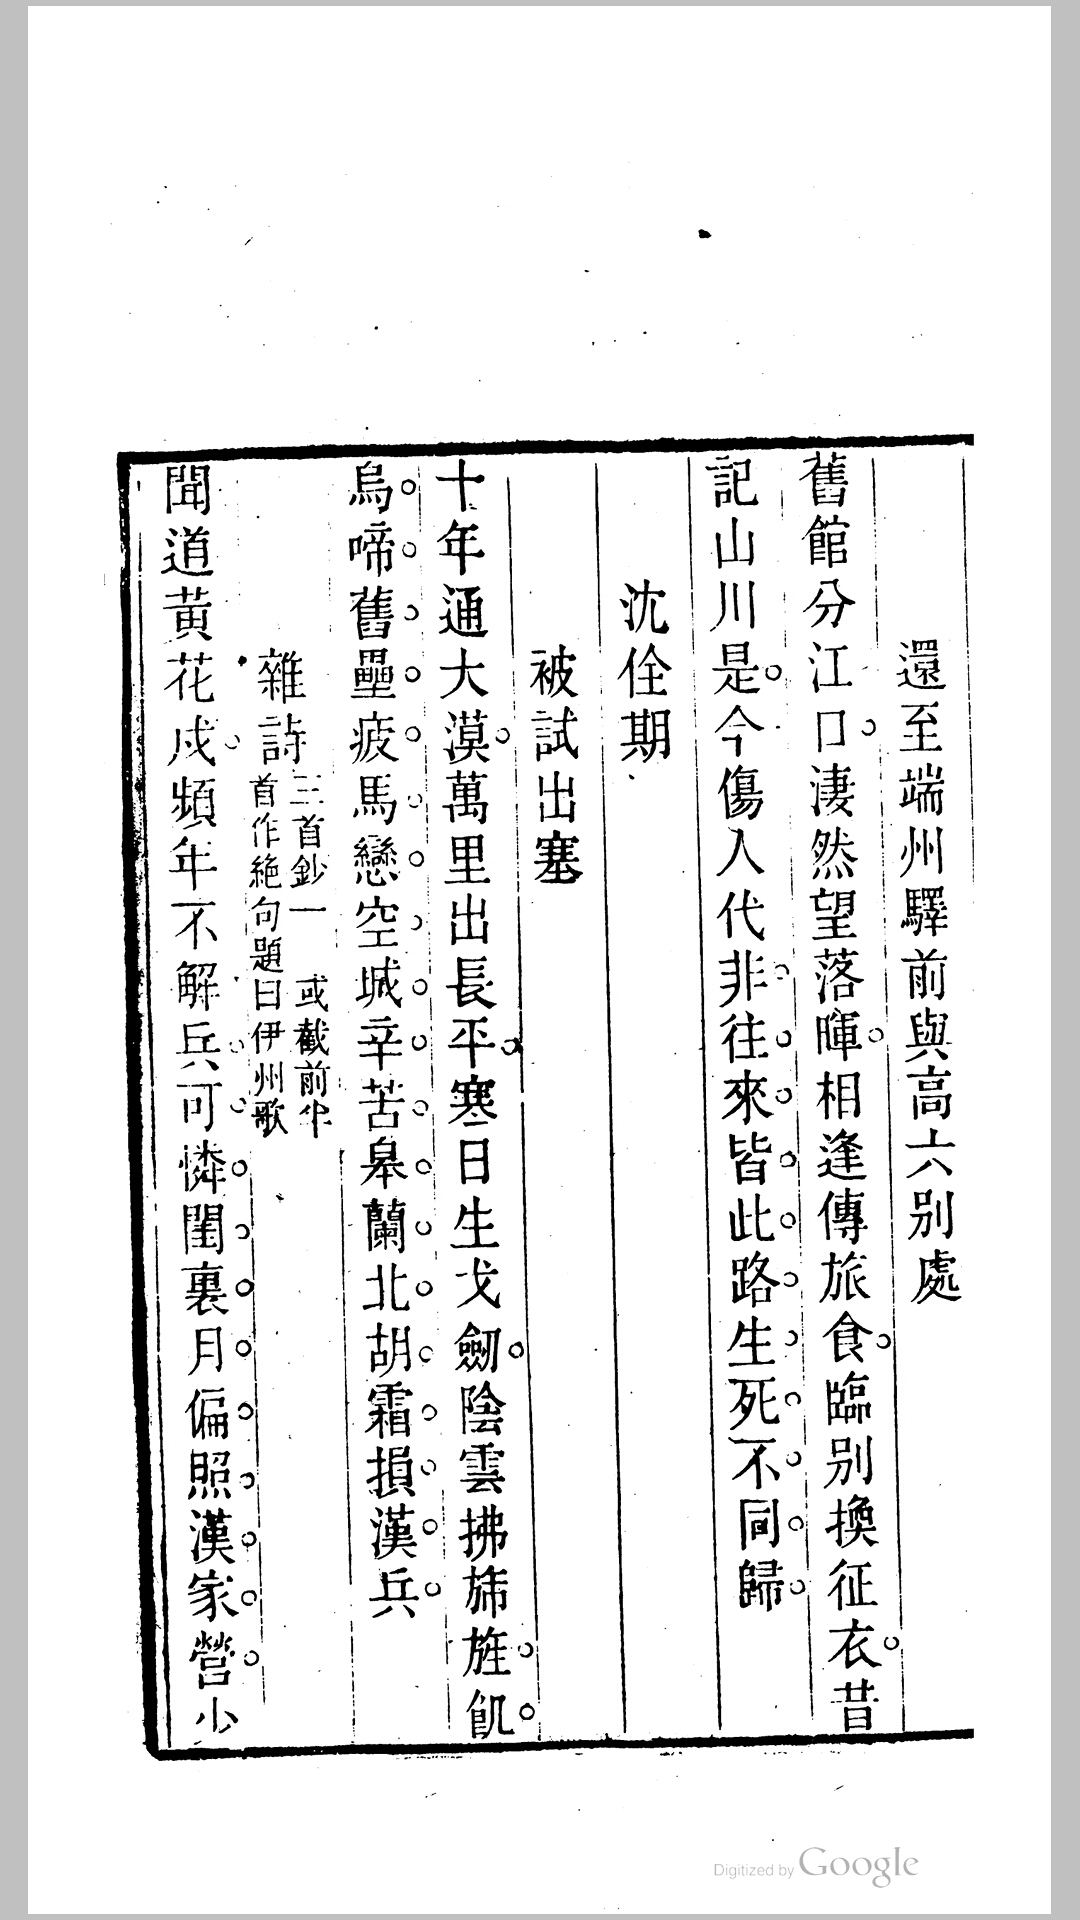 還至端州驛前與高六別處
舊館分江口淒然望落暉相逢傳旅食臨別換征衣昔
記山川是今傷人代非往來皆此路生死不同歸
沈佺期
被試出塞
十年通大漠萬里出長平寒日生戈劒陰雲拂旆旌飢
烏啼舊壘疲馬戀空城辛苦皋蘭北胡霜損漢兵
雜詩
三首鈔一 或截前半
首作絕句題曰伊州歌
聞道黃花戍頻年不解兵可憐閨裏月偏照漢家營少
Digitized by Google